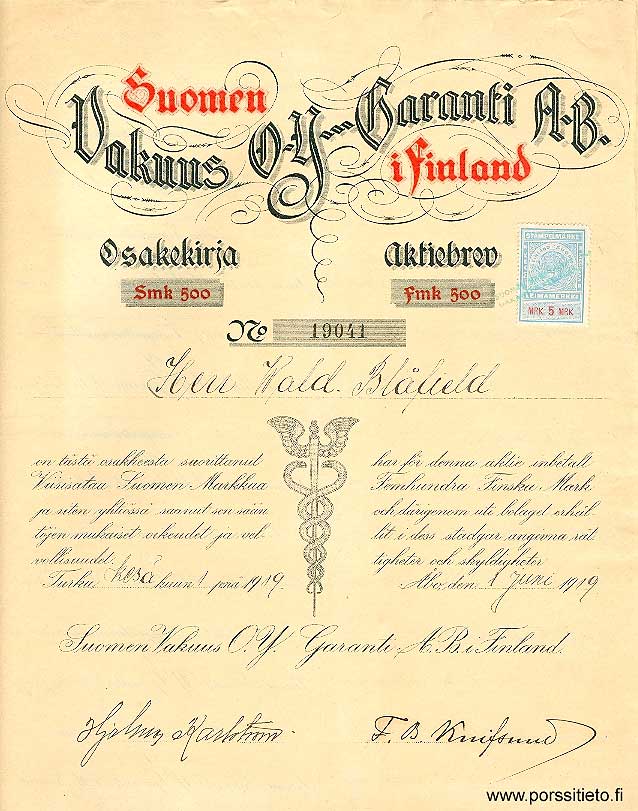 Suomen
Vakuus O-Y — Garanti A-B.
i Finland
Osakekirja
Aktiebrev
Smk 500
Fmk 500
STÄMPELMÄRKE
LEIMAMERKKI
MRK 5 MRK
No 19041
Herr Wald. Blåfield
en tästä osakkeesta suorittanut
Viisisataa Suomen Markkaa
ja siten yhtiössä saanut sen sään-
töjen mukaiset oikeudet ja vel-
vollisuudet.
Turku, kesä kuun 1 pnä 1919
har för denna aktie inbetalt
Femhundra Finska Mark
och därigenom uti bolaget erhål-
lit i dess stadgar angivna rät-
tigheter och skyldigheter
Åbo, den 1 Juni 1919
Suomen Vakuus O.Y. Garanti A.B. i Finland.
Hjalmar Karlström
F. B. Knifsund
www.porssitieto.fi